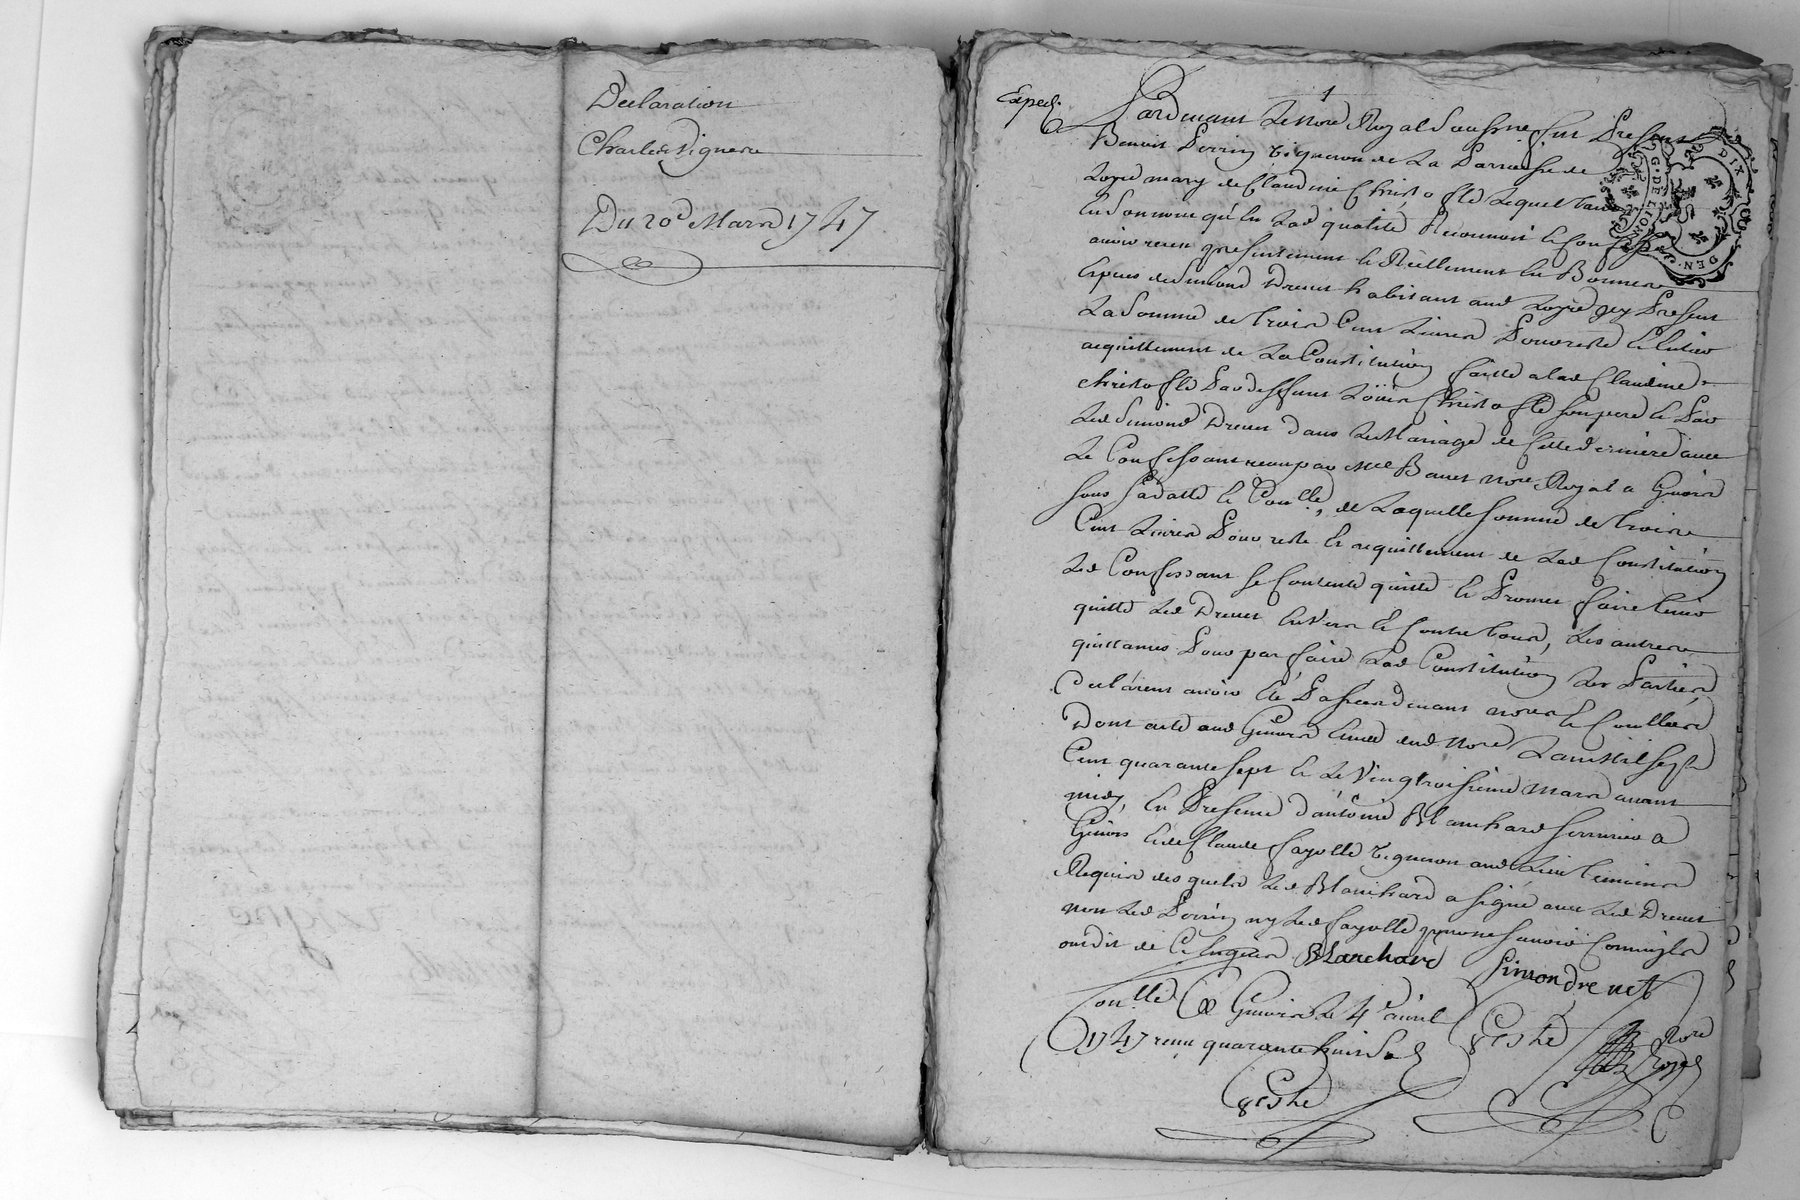 Declaration
Charles Vignere
Du 20e Mars 1747
Exped.
1
Pardevant le Nore Royal soussigné fut present
Benoit Perrin vigneron de la Parroisse de
Loyre mary de Claudine Christofle lequel tant
en son nom qu'en lad qualité Reconnoit et Confesse
avoir receu presentement et Reellement en Bonnes
Especes de Simond Drevet habitant aud Loyre icy Present
La Somme de trois Cent Livres Pour reste et Entier
acquittement de La Constitution faitte a lad Claudine
christofle Par deffunt Loüis Christofle son pere et Par
Led Simond Drevet dans Le Mariage de cette derniere avec
Le Confessant receu par Me Banet Nore Royal a Givors
sous sa datte et Conlle, de Laquelle somme de trois
Cent Livres Pour reste et acquittement de Lad Constitution
Led Confessant se Contente quitte et Promet faire tenir
quitte Led Drevet Envers et Contre tous, Les autres
quittances Pour parfaire Lad Constitution Les Parties
Declarent avoir été Passées devant nores et Conllées
Dont acte aud Givors Etude dud Nore L'an Mil sept
Cent quarante sept et Le Vingtroisieme Mars avant
midy, En Presence d'antoine Blanchard serrurier a
Givors et de Claude fayolle vigneron aud Lieu temoins
Requis desquels Led Blanchard a signé avec Led Drevet
non Led Perrin ny Led fayolle pour ne sçavoir Comm'ils
ont dit de ce Enquis Blanchard
Simon drevet
Conllé a Givors Le 4e avril
1747 receu quarante huit Sols
Nore
Royal